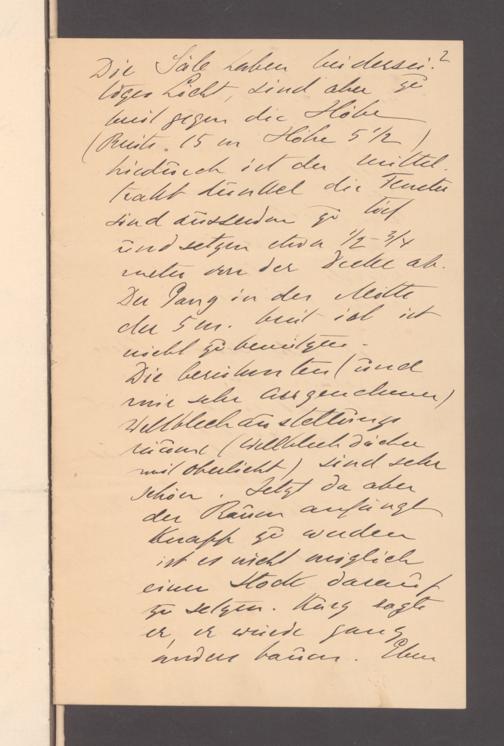 2
Die Säle haben beidersei-
tiges Licht, sind aber zu
breit gegen die Höhe
(Breite 15 m Höhe 5 1/2)
hiedurch ist der Mittel-
trakt dunkel die Fenster
sind ausserdem zu tief
und setzen etwa 1/2-3/4
meter von der Decke ab.
Der Gang in der Mitte
der 5 m. breit ist ist
nicht zu benützen.
Die berühmten (und
mir sehr angenehmen)
Wellblechausstellungs
räume (Wellblechdächer
mit Oberlicht) sind sehr
schön. Jetzt da aber
der Raum anfängt
knapp zu werden
ist es nicht möglich
einen Stock darauf
zu setzen. Kurz sagte
er, er würde ganz
anders bauen. Eben